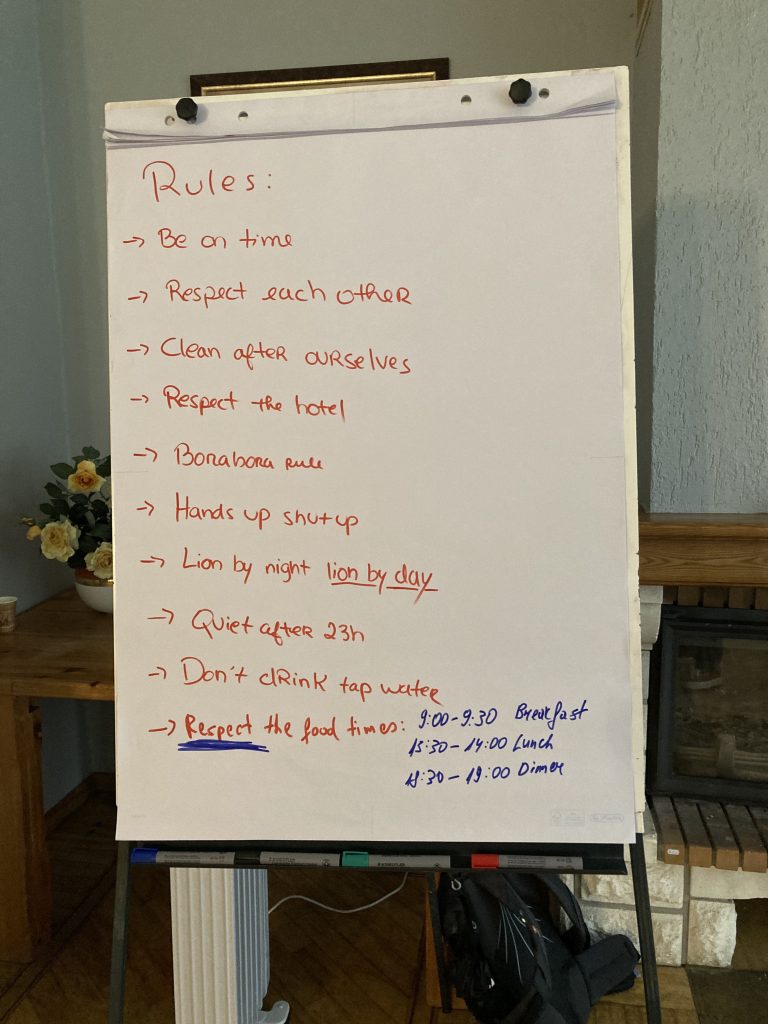 Rules:
→ Be on time
→ Respect each other
→ Clean after ourselves
→ Respect the hotel
→ Borabora rule
→ Hands up shut up
→ Lion by night lion by day
→ Quiet after 23h
→ Don't drink tap water
→ Respect the food times: 9:00-9:30 Breakfast
13:30-14:00 Lunch
18:30-19:00 Dinner